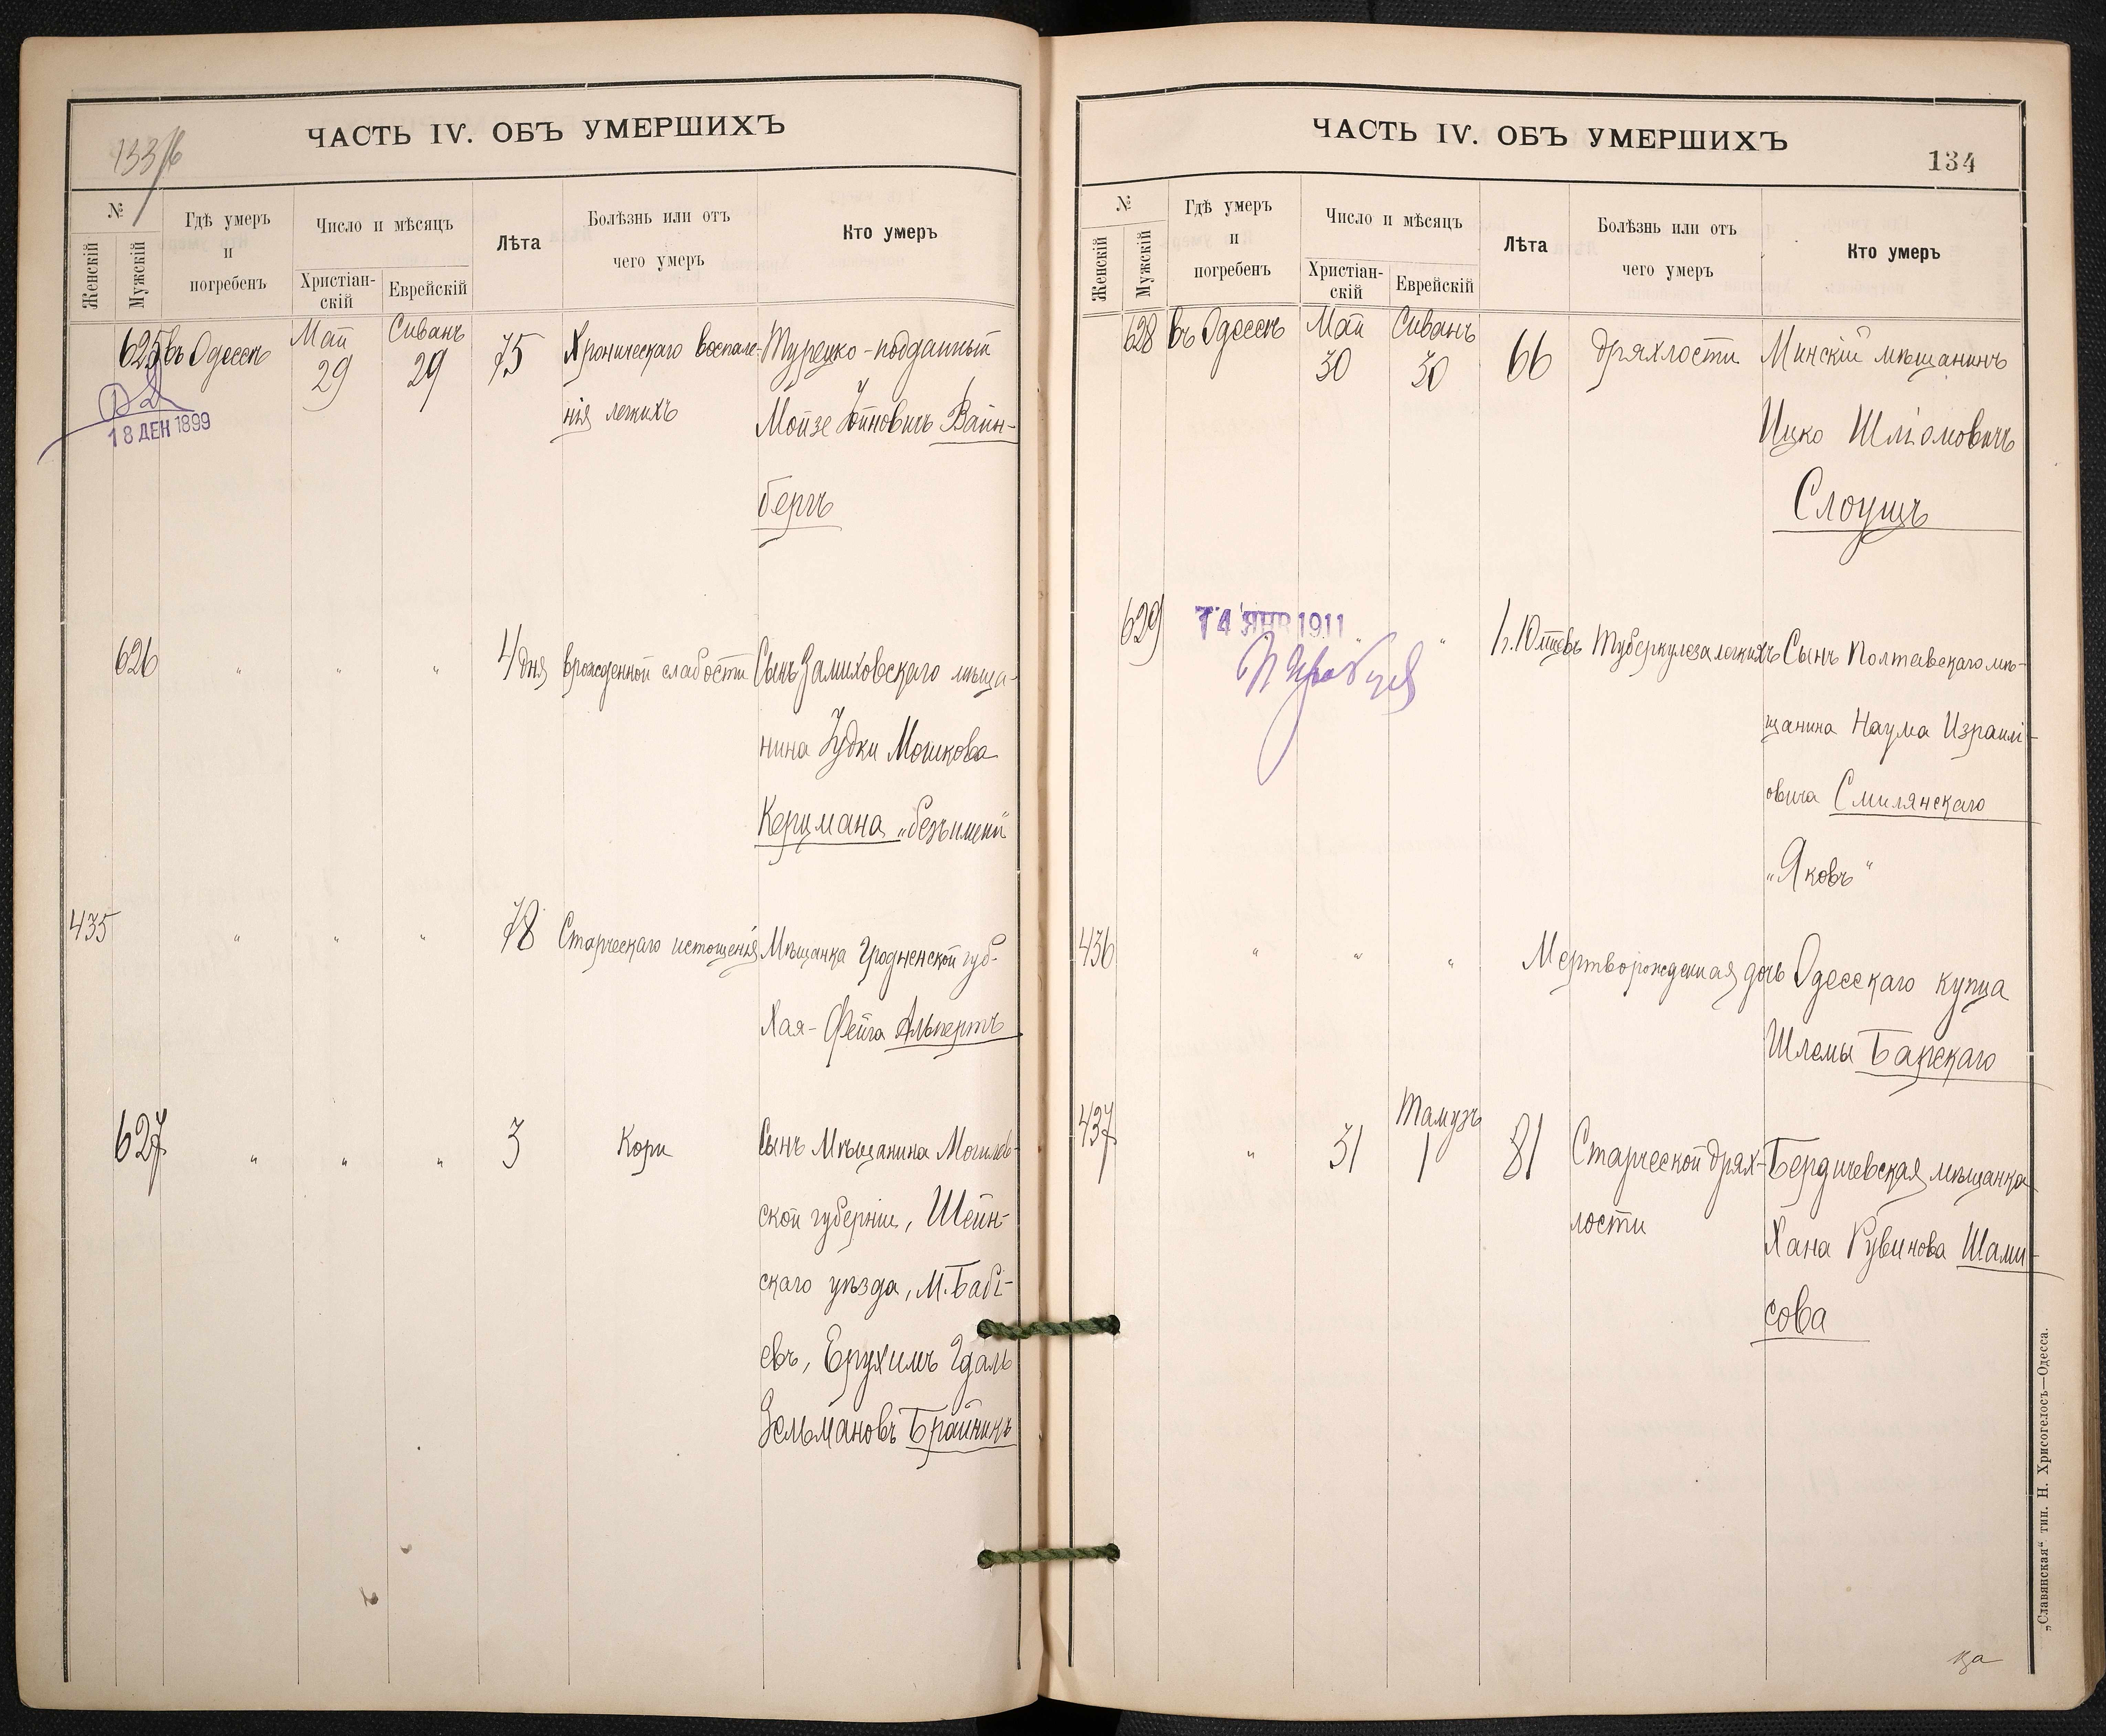 133/6
ЧАСТЬ IV. ОБЪ УМЕРШИХЪ
№
Женскій
Мужскій
Гдѣ умеръ
и
погребенъ
Число и мѣсяцъ
Христіан-
скій
Еврейскій
Лѣта
Болѣзнь или отъ
чего умеръ
Кто умеръ
625 въ Одессѣ Май Сиванъ 75 Хроническаго воспале- Турецко-подданный
29 29
нія легкихъ Мойзе Войновичъ Вайн-
18 ДЕК 1899
бергъ
626 " " " 4 дня врожденной слабости Сынъ Замиховскаго мѣща-
нина Зудки Мошкова
Керцмана „безъ имени"
435 " " " 78 Старческаго истощенія Мѣщанка Гродненской губ.
Хая-Фейга Альпертъ
627 " " " 3 Кори Сынъ Мѣщанина Могилев-
ской губерніи,
скаго уѣзда, М. Бабі-
евъ, Ерухимъ Гдаль
Зельмановъ Брайникъ
ЧАСТЬ IV. ОБЪ УМЕРШИХЪ
134
№
Женскій
Мужскій
Гдѣ умеръ
и
погребенъ
Число и мѣсяцъ
Христіан-
скій
Еврейскій
Лѣта
Болѣзнь или отъ
чего умеръ
Кто умеръ
628 въ Одессѣ Май Сиванъ 66 дряхлости Минскій мѣщанинъ
30 30
Ицко Шліомовичъ
Слоущъ
629 14 ЯНВ 1911 " " 1 г. 10 мѣсцвъ Туберкулеза легкихъ Сынъ Полтавскаго мѣ-
щанина Наума Израилі-
овича Смилянскаго
„Яковъ"
436 " " " Мертворожденная дочь Одесскаго купца
Шлемы Барскаго
437 " 31 Тамузъ 1 81 Старческой дрях- Бердичевская мѣщанка
лости
Хана Рувинова Шами-
сова
„Славянская" тип. Н. Хрисогелосъ—Одесса.